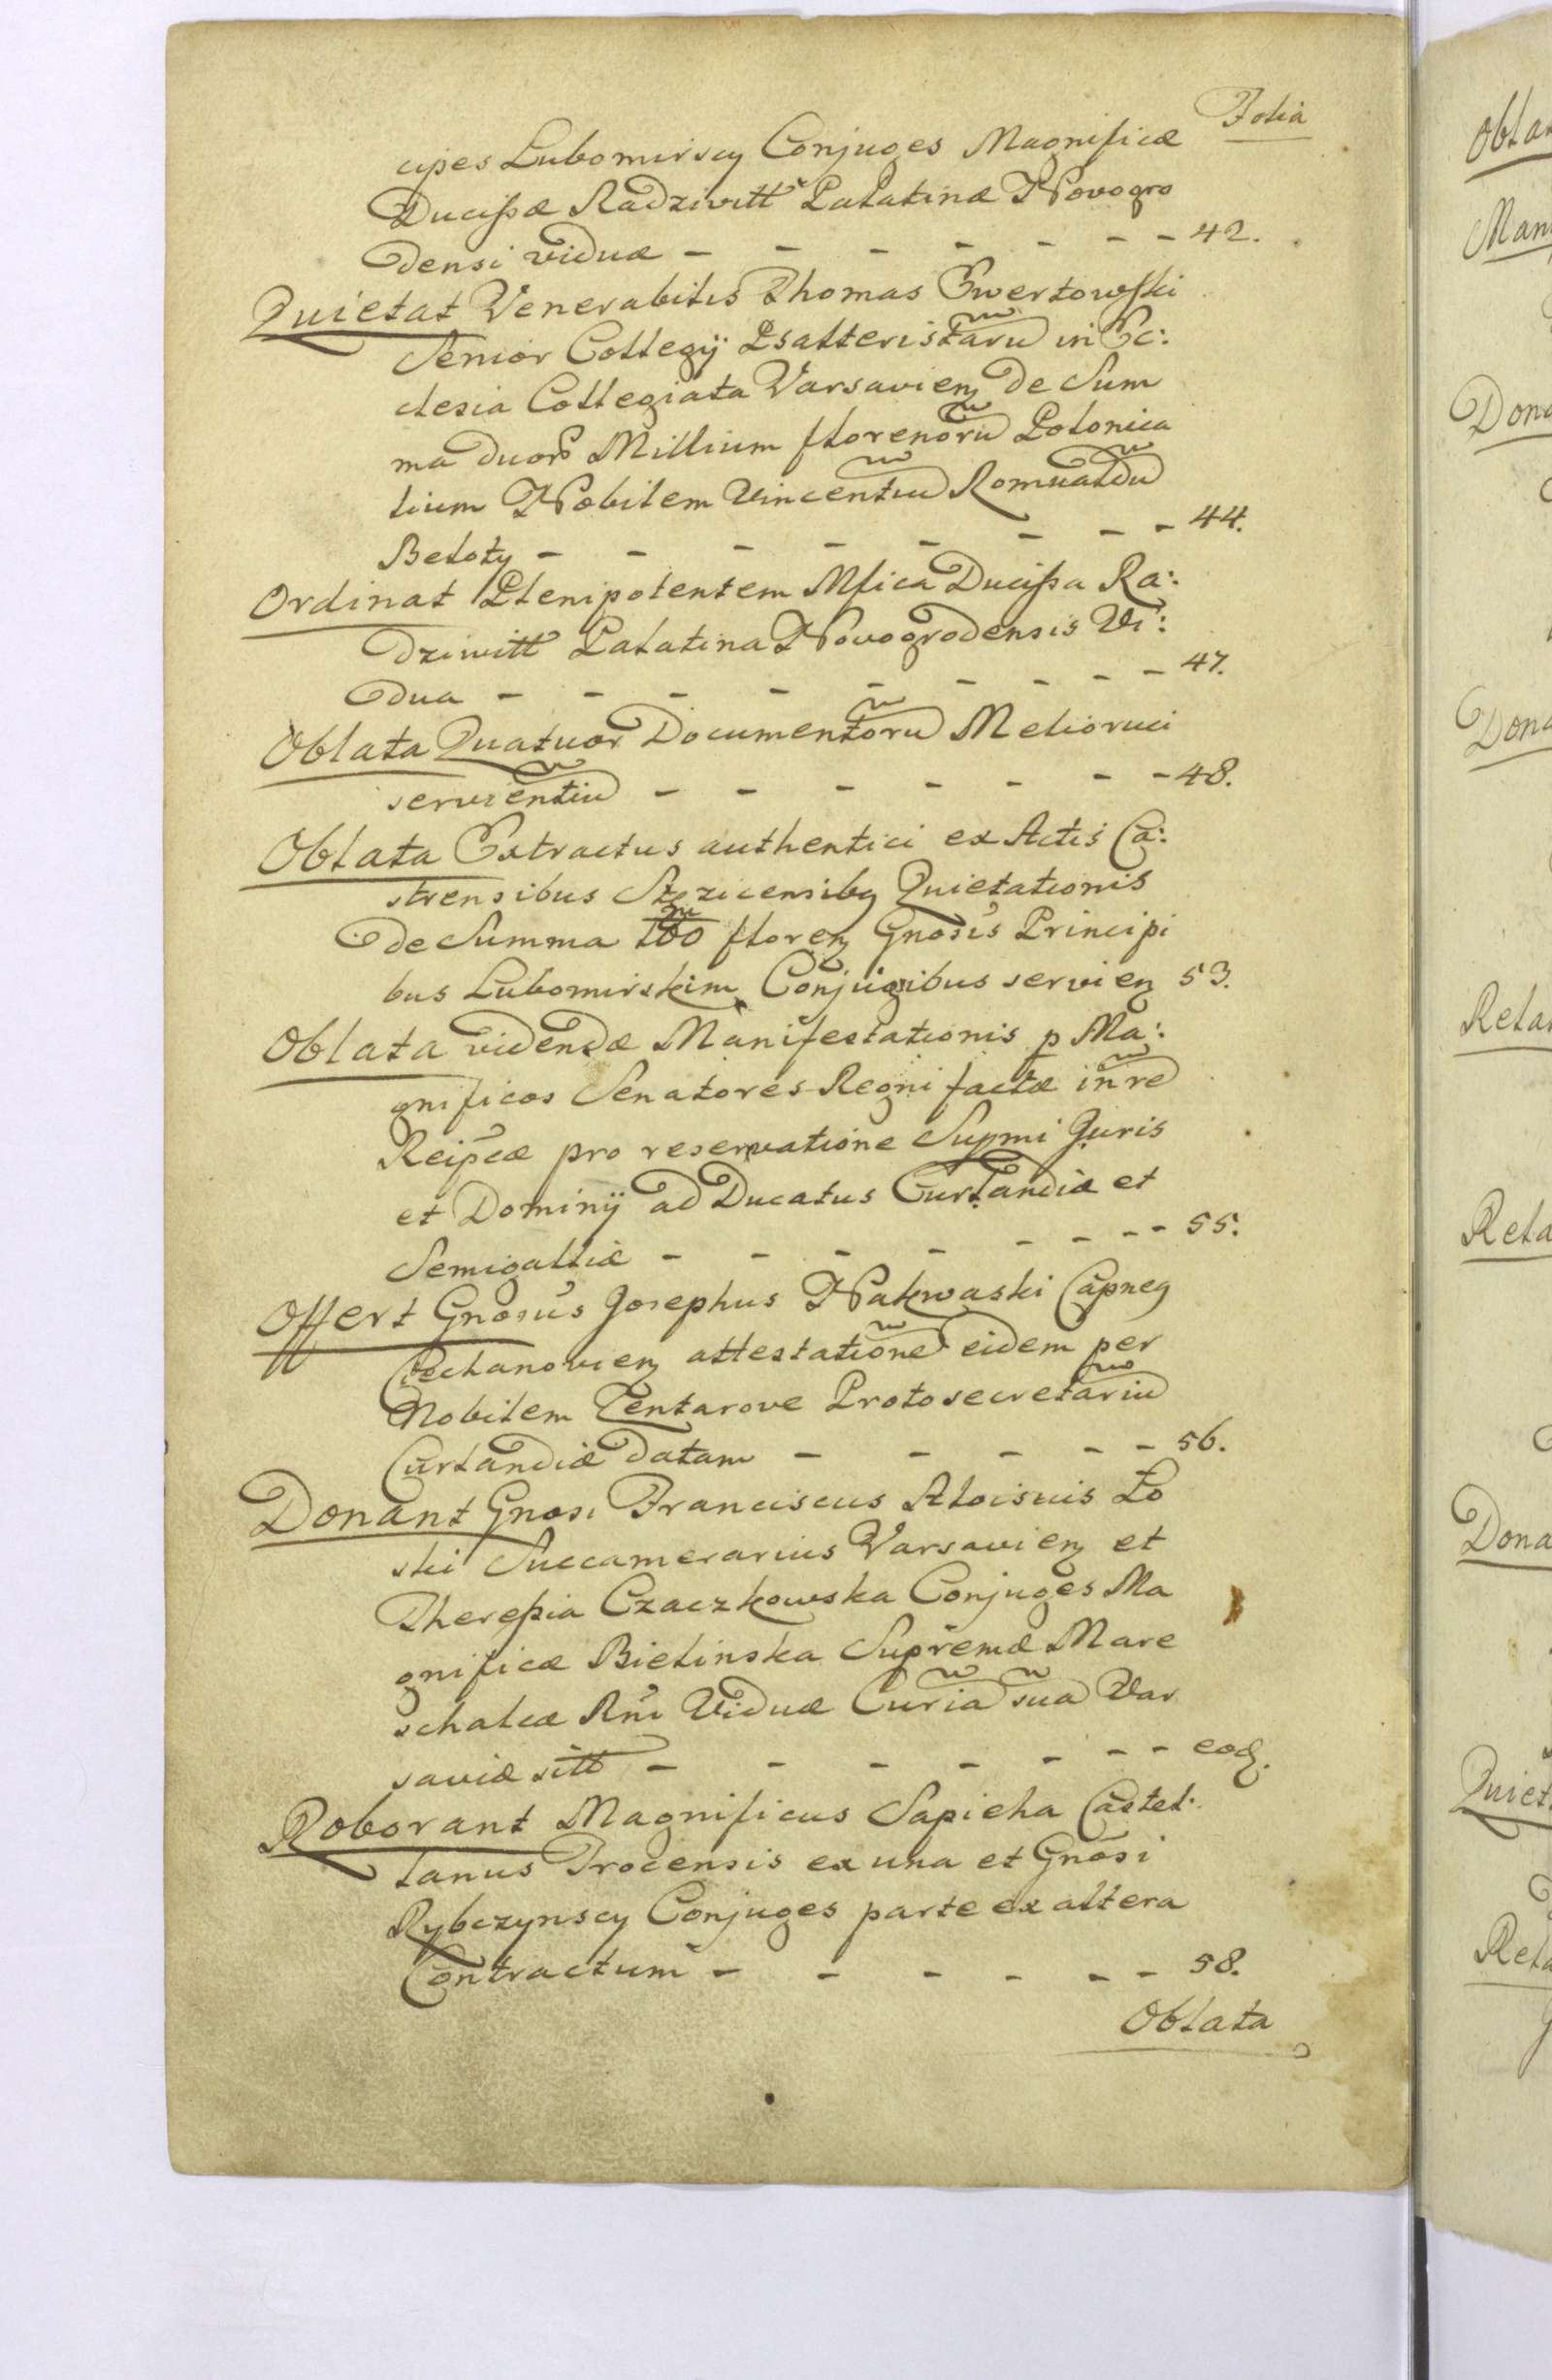 Folia
cipes Lubomirscy Conjuges Magnificæ
Ducißæ Radziwiłł Palatinæ Novogro
densi viduæ - - - - - - - 42.
Quietat Venerabilis Thomas Ewertowski
Senior Collegij Psalteristarũ in Ec:
clesia Collegiata Varsavien de Sum
ma duor Millium florenorũ Polonica
lium Nobilem Vincentiũ Romualdũ
Beloty - - - - - - - - 44.
Ordinat Plenipotentem Mfica Ducißa Ra:
dziwiłł Palatina Novogrodensis Vi:
dua - - - - - - - - - 47.
Oblata Quatuor Documentorũ Melioruci
servientiũ - - - - - - - 48.
Oblata Extractus authentici ex Actis Ca:
strensibus Stezicensibq Quietationis
de Summa 100 floren Gnosis Principi
bus Lubomirskim Conjugibus servien 53.
Oblata videndæ Manifestationis p Ma:
gnificos Senatores Regni factæ in re
Reipcæ pro reservatione Supmi Juris
et Dominij ad Ducatus Curlandiæ et
Semigalliæ - - - - - - - - 55.
Offert Gnosus Josephus Nakwaski Capneg
Ciechanovien attestationẽ eidem per
Nobilem Tentarove Protosecretariũ
Curlandiæ datam - - - - - 56.
Donant Gnosi Franciscus Aloisius Ło
ski Succamerarius Varsavien et
Thereßia Czaczkowska Conjuges Ma
gnificæ Bielinska Supremæ Mare
schalcæ Rni Viduæ Curiã suã Var
saviæ sitt - - - - - - - eod.
Roborant Magnificus Sapieha Castel:
lanus Trocensis ex una et Gnosi
Rybczynscy Conjuges parte ex altera
Contractum - - - - - - 58.
Oblata
Obla
Man
Dona
Dona
Rela
Rela
Dona
Quiet
Rela